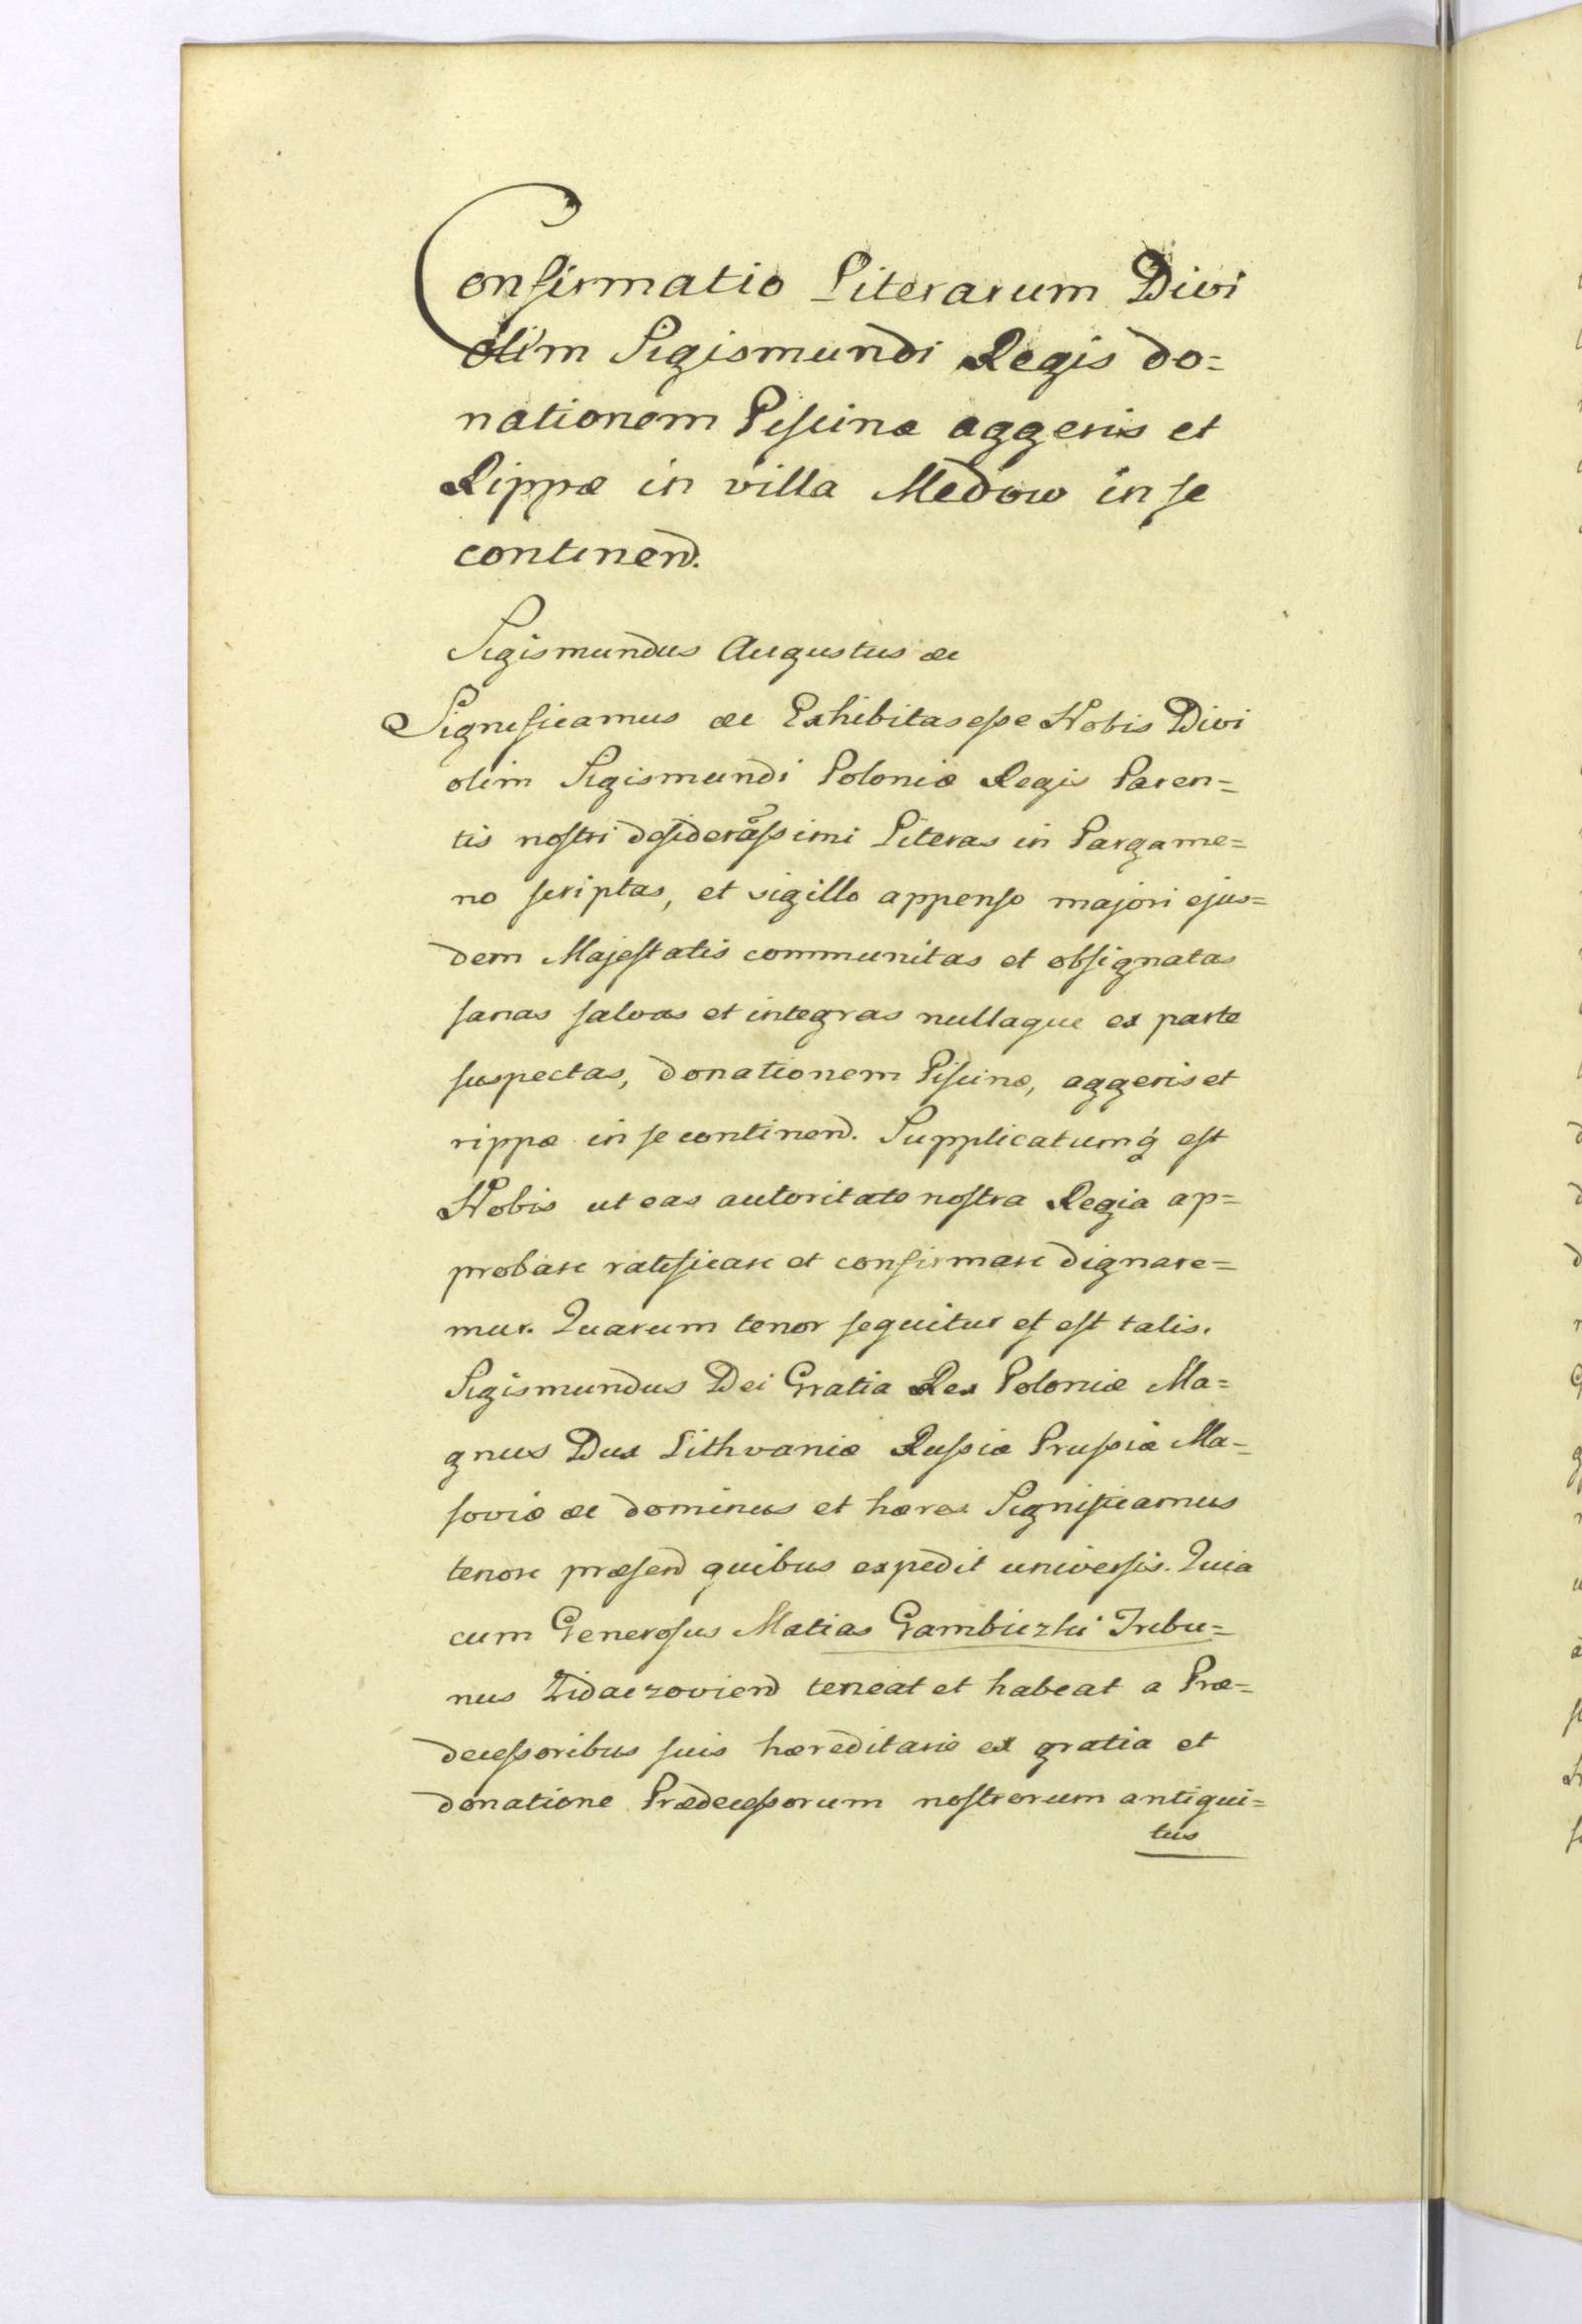 Confirmatio Literarum Divi
olim Sigismundi Regis do=
nationem Piscinæ aggeris et
Rippæ in villa Medow in se
continend.
Sigismundus Augustus &c
Significamus &c Exhibitas esse Nobis Divi
olim Sigismundi Poloniæ Regis Paren=
tis nostri desiderãssimi Literas in Pargame=
no scriptas, et sigillo appenso majori ejus=
dem Majestatis communitas et obsignatas
sanas salvas et integras nullaque ex parte
suspectas, donationem Piscinæ, aggeris et
rippæ in se continend. Supplicatumq́ est
Nobis ut eas autoritate nostra Regia ap=
probare ratificare et confirmare dignare=
mur. Quarum tenor sequitur et est talis.
Sigismundus Dei Gratia Rex Poloniæ Ma=
gnus Dux Lithvaniæ Russiæ Prussiæ Ma=
soviæ &c dominus et hæres Significamus
tenore præsend quibus expedit universis. Quia
cum Generosus Matias Gambiczki Tribu=
nus Zidaczoviend teneat et habeat a Præ=
decessoribus suis hæreditarie ex gratia et
donatione Prædecessorum nostrorum antiqui=
tus